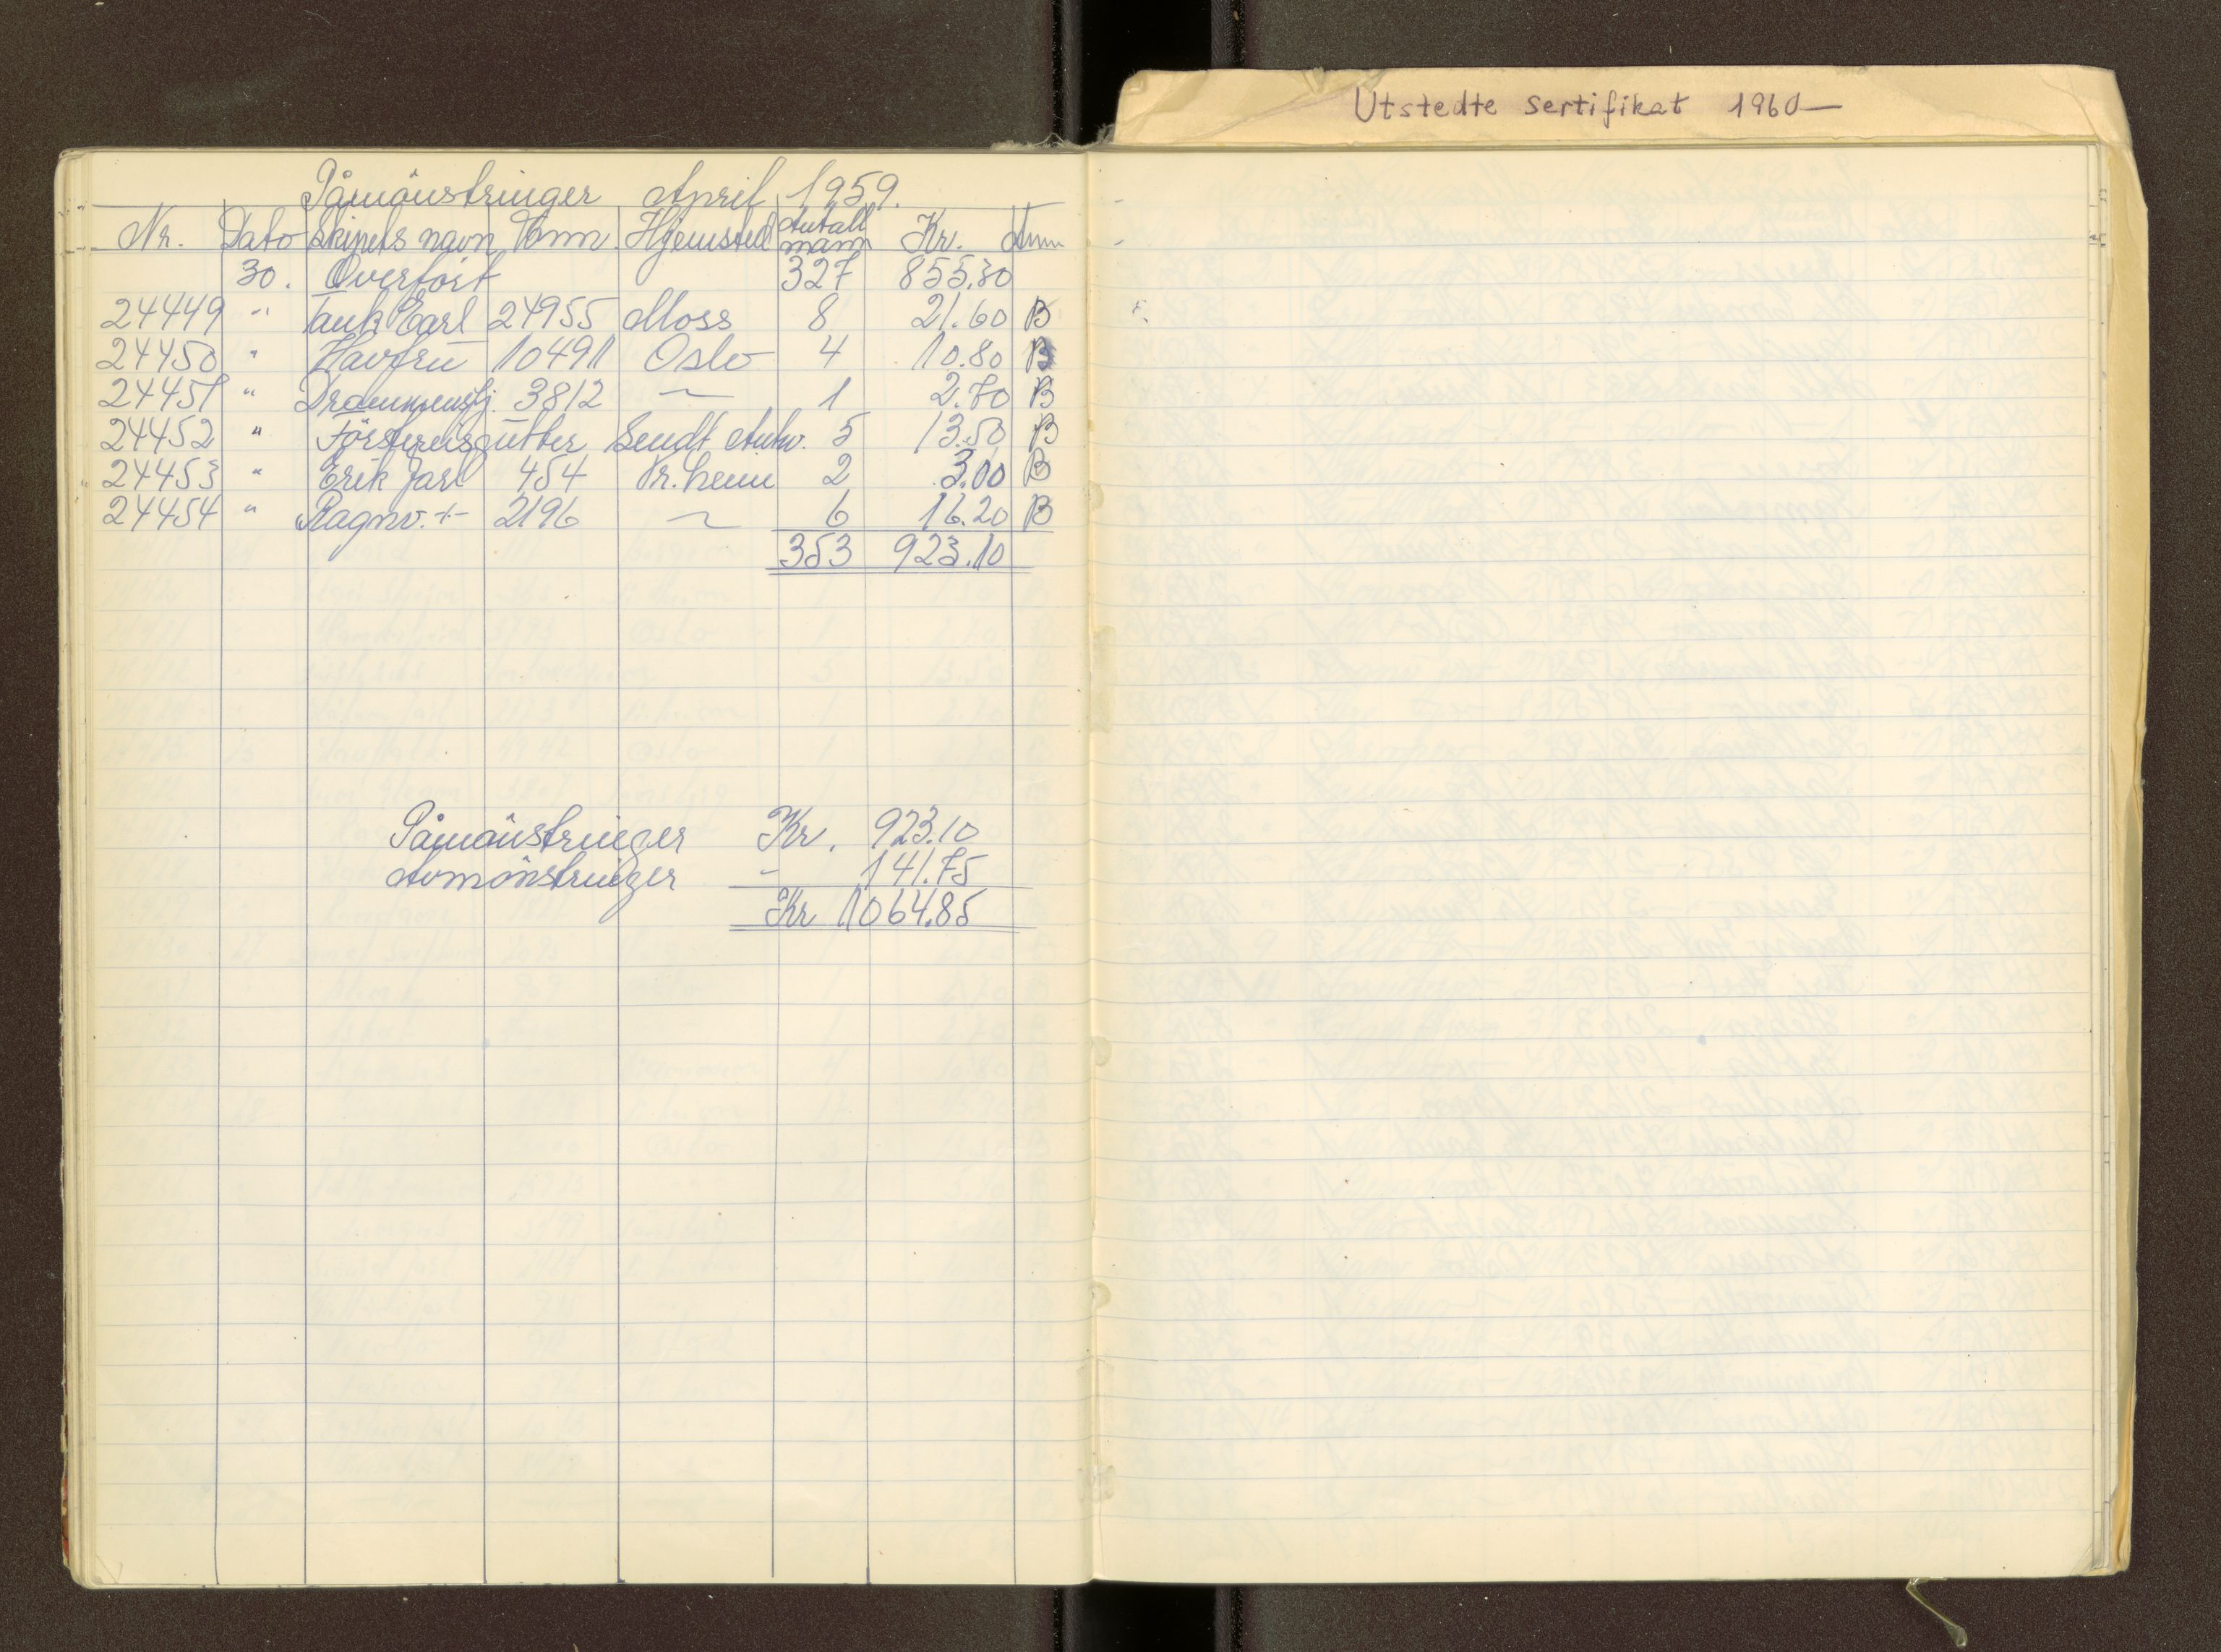 Utstedte sertifikat 1960—
Påmönstringer April 1959.
Nr. Dato Skipets navn Tonn. Hjemsted Antall mann Kr. Anm
30. Overført 327 855.30
24449 " Tank Earl 24955 Moss 8 21.60 B
24450 " Havfru 10491 Oslo 4 10.80 B
24451 " Drammensfj. 3812 ~ 1 2.70 B
24452 " Førstereisgutter Sendt Antw. 5 13.50 B
24453 " Erik Jarl 454 Tr.heim 2 3.00 B
24454 " Ragnv. -"- 2196 ~ 6 16.20 B
353 923.10
Påmönstringer Kr. 923.10
Avmönstringer - 141.75
Kr 1064.85